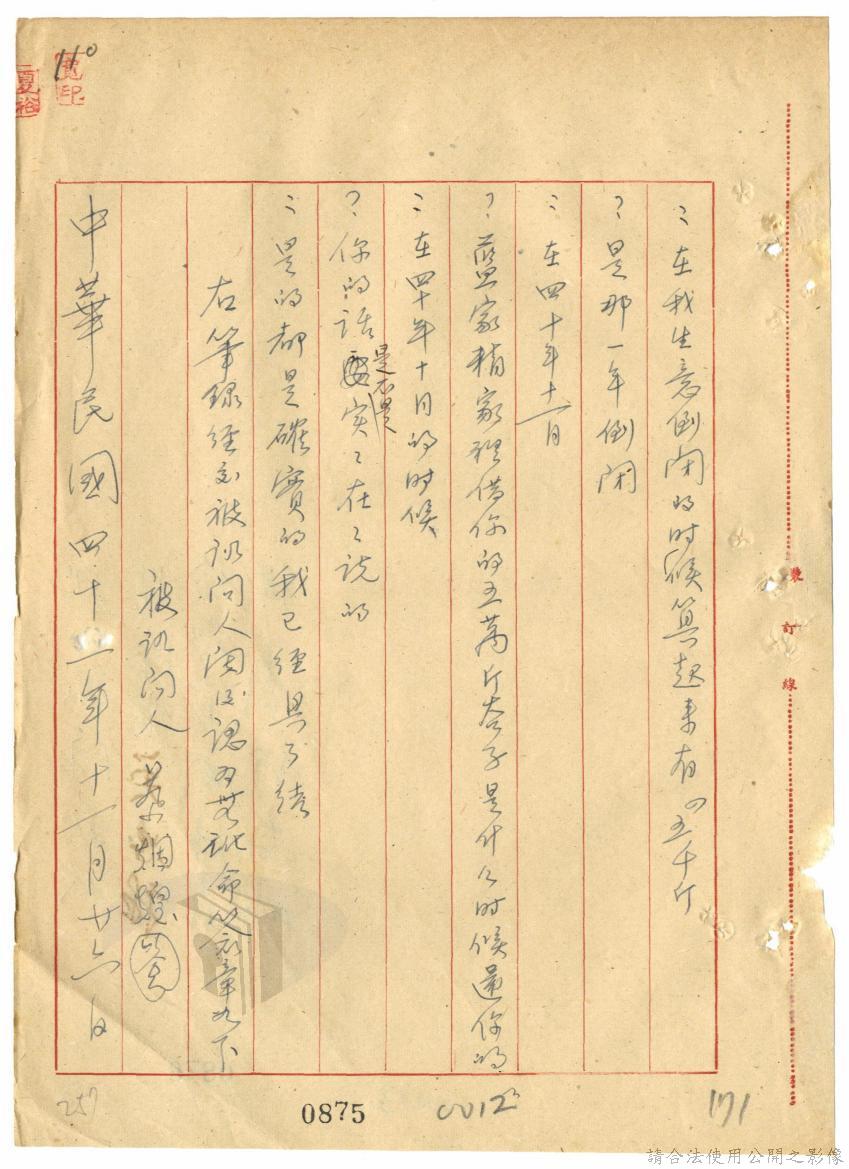 110
寬印
夏裕
：在我生意倒闭的时候算起来有四五千斤
？是那一年倒闭
：在四十年十一月
？蓝家精家裡借你的五萬斤谷子是什么时候還你的
：在四十年十月的时候
？你的话是不是实：在：说的
：是的都是確實的我已經具了結
右筆錄經交被訊问人閱後認为無訛命其簽章於下
被訊问人 蔡炯煌
中華民國四十二年十一月廿六日
裝訂線
257
0875
171
請合法使用公開之影像